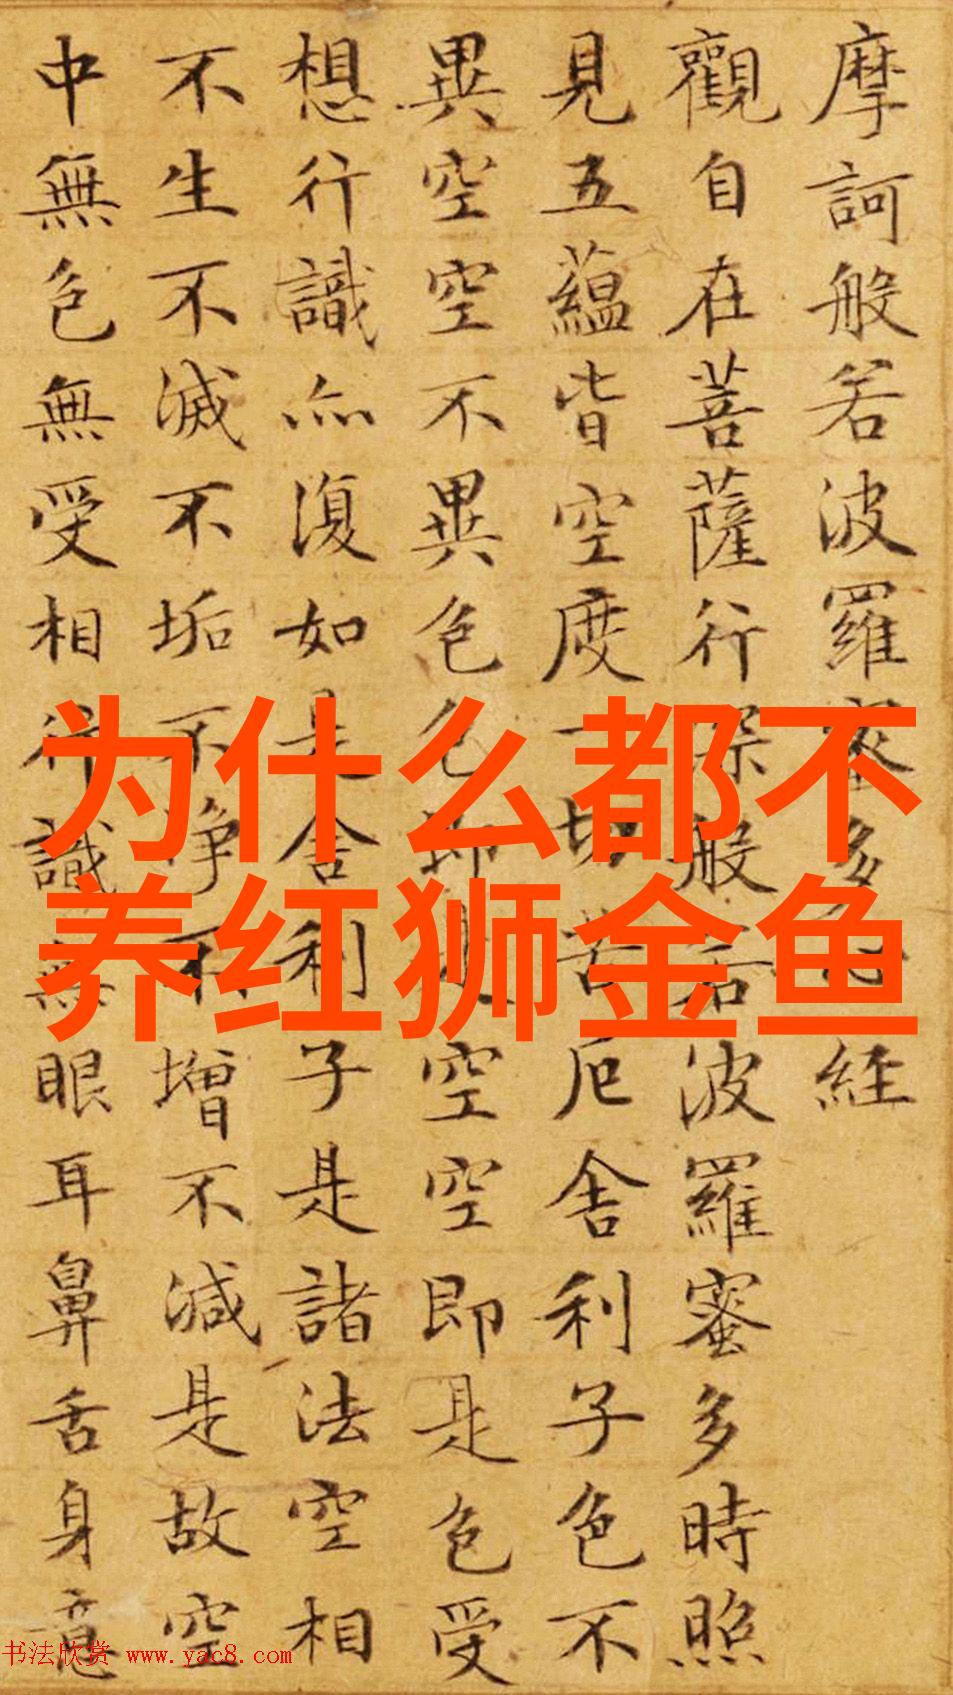 摩訶般若波羅蜜多心經
觀自在菩薩行深般若波羅蜜多時照
見五蘊皆空度一切苦厄舍利子色不
異空空不異色色即是空空即是色受
想行識亦復如是舍利子是諸法空相
不生不滅不垢不淨不增不減是故空
中無色無受相行識無眼耳鼻舌身意
为什么都不
养红狮金鱼
书法欣赏 www.yac8.com